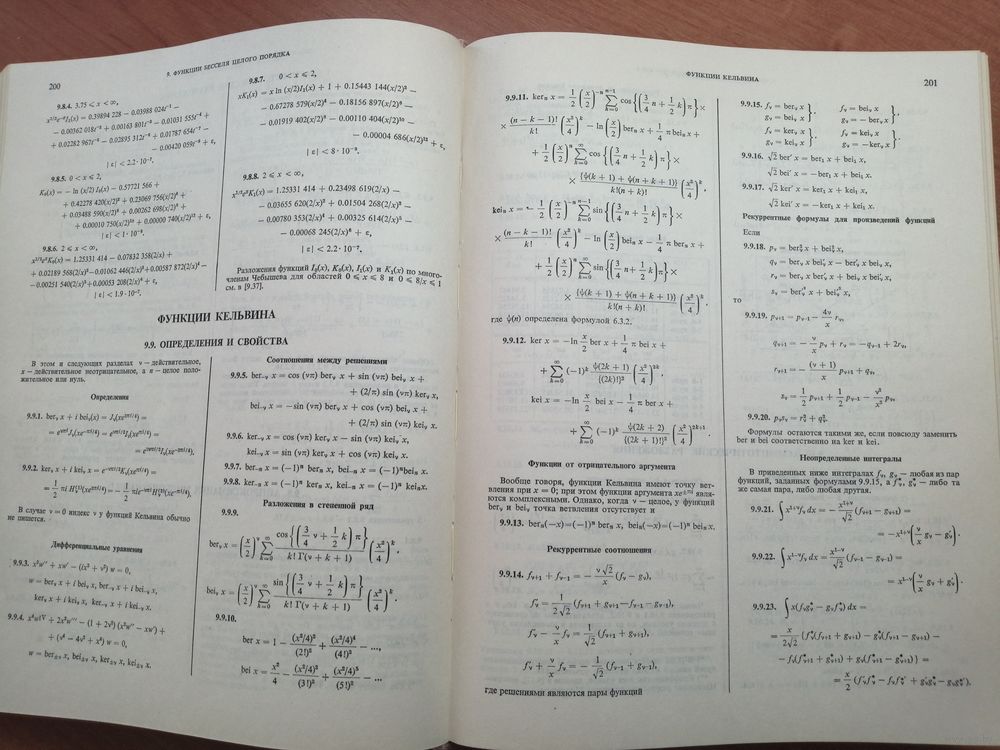 200
9. ФУНКЦИИ БЕССЕЛЯ ЦЕЛОГО ПОРЯДКА
9.8.4. 3.75 ⩽ x < ∞,
x^{1/2}e^{-x}I_1(x) = 0.39894 228 − 0.03988 024t^{-1} −
− 0.00362 018t^{-2} + 0.00163 801t^{-3} − 0.01031 555t^{-4} +
+ 0.02282 967t^{-5} − 0.02895 312t^{-6} + 0.01787 654t^{-7} −
− 0.00420 059t^{-8} + ε,
|ε| < 2.2 · 10^{-7}.
9.8.5. 0 < x ⩽ 2,
K_0(x) = − ln (x/2) I_0(x) − 0.57721 566 +
+ 0.42278 420(x/2)² + 0.23069 756(x/2)⁴ +
+ 0.03488 590(x/2)⁶ + 0.00262 698(x/2)⁸ +
+ 0.00010 750(x/2)^{10} + 0.00000 740(x/2)^{12} + ε,
|ε| < 1 · 10^{-8}.
9.8.6. 2 ⩽ x < ∞,
x^{1/2}e^xK_0(x) = 1.25331 414 − 0.07832 358(2/x) +
+ 0.02189 568(2/x)² − 0.01062 446(2/x)³ + 0.00587 872(2/x)⁴ −
− 0.00251 540(2/x)⁵ + 0.00053 208(2/x)⁶ + ε,
|ε| < 1.9 · 10^{-7}.
9.8.7. 0 < x ⩽ 2,
xK_1(x) = x ln (x/2)I_1(x) + 1 + 0.15443 144(x/2)² −
− 0.67278 579(x/2)⁴ − 0.18156 897(x/2)⁶ −
− 0.01919 402(x/2)⁸ − 0.00110 404(x/2)^{10} −
− 0.00004 686(x/2)^{12} + ε,
|ε| < 8 · 10^{-9}.
9.8.8. 2 ⩽ x < ∞,
x^{1/2}e^xK_1(x) = 1.25331 414 + 0.23498 619(2/x) −
− 0.03655 620(2/x)² + 0.01504 268(2/x)³ −
− 0.00780 353(2/x)⁴ + 0.00325 614(2/x)⁵ −
− 0.00068 245(2/x)⁶ + ε,
|ε| < 2.2 · 10^{-7}.
Разложения функций I_0(x), K_0(x), I_1(x) и K_1(x) по много-
членам Чебышева для областей 0 ⩽ x ⩽ 8 и 0 ⩽ 8/x ⩽ 1
см. в [9.37].
ФУНКЦИИ КЕЛЬВИНА
9.9. ОПРЕДЕЛЕНИЯ И СВОЙСТВА
В этом и следующих разделах ν — действительное,
x — действительное неотрицательное, а n — целое поло-
жительное или нуль.
Определения
9.9.1. ber_ν x + i bei_ν(x) = J_ν(xe^{3πi/4}) =
= e^{νπi}J_ν(xe^{-πi/4}) = e^{νπi/2}I_ν(xe^{πi/4}) =
= e^{3νπi/2}I_ν(xe^{-3πi/4}).
9.9.2. ker_ν x + i kei_ν x = e^{-νπi/2}K_ν(xe^{πi/4}) =
= 1/2 πi H_ν^{(1)}(xe^{3πi/4}) = − 1/2 πie^{-νπi}H_ν^{(2)}(xe^{-πi/4}).
В случае ν = 0 индекс ν у функций Кельвина обычно
не пишется.
Дифференциальные уравнения
9.9.3. x²w″ + xw′ − (ix² + ν²) w = 0,
w = ber_ν x + i bei_ν x, ber_{-ν} x + i bei_{-ν} x,
ker_ν x + i kei_ν x, ker_{-ν} x + i kei_{-ν} x.
9.9.4. x⁴w^{IV} + 2x³w‴ − (1 + 2ν²) (x²w″ − xw′) +
+ (ν⁴ − 4ν² + x⁴) w = 0,
w = ber_{±ν} x, bei_{±ν} x, ker_{±ν} x, kei_{±ν} x.
Соотношения между решениями
9.9.5. ber_{-ν} x = cos (νπ) ber_ν x + sin (νπ) bei_ν x +
+ (2/π) sin (νπ) ker_ν x,
bei_{-ν} x = −sin (νπ) ber_ν x + cos (νπ) bei_ν x +
+ (2/π) sin (νπ) kei_ν x.
9.9.6. ker_{-ν} x = cos (νπ) ker_ν x − sin (νπ) kei_ν x,
kei_{-ν} x = sin (νπ) ker_ν x + cos (νπ) kei_ν x.
9.9.7. ber_{-n} x = (−1)^n ber_n x, bei_{-n} x = (−1)^n bei_n x.
9.9.8. ker_{-n} x = (−1)^n ker_n x, kei_{-n} x = (−1)^n kei_n x.
Разложения в степенной ряд
9.9.9.
ber_ν x = (x/2)^ν Σ_{k=0}^∞ cos{(3/4 ν + 1/2 k) π} / k! Γ(ν + k + 1) (x²/4)^k,
bei_ν x = (x/2)^ν Σ_{k=0}^∞ sin{(3/4 ν + 1/2 k) π} / k! Γ(ν + k + 1) (x²/4)^k.
9.9.10.
ber x = 1 − (x²/4)²/(2!)² + (x²/4)⁴/(4!)² − ...,
bei x = x²/4 − (x²/4)³/(3!)² + (x²/4)⁵/(5!)² − ...
ФУНКЦИИ КЕЛЬВИНА
201
9.9.11. ker_n x = 1/2 (x/2)^{-n} Σ_{k=0}^{n−1} cos{(3/4 n + 1/2 k) π} ×
× (n − k − 1)!/k! (x²/4)^k − ln (x/2) ber_n x + 1/4 π bei_n x +
+ 1/2 (x/2)^n Σ_{k=0}^∞ cos {(3/4 n + 1/2 k) π} ×
× {ψ(k + 1) + ψ(n + k + 1)}/k!(n + k)! (x²/4)^k,
kei_n x = − 1/2 (x/2)^{-n} Σ_{k=0}^{n−1} sin{(3/4 n + 1/2 k) π} ×
× (n − k − 1)!/k! (x²/4)^k − ln (x/2) bei_n x − 1/4 π ber_n x +
+ 1/2 (x/2)^n Σ_{k=0}^∞ sin{(3/4 n + 1/2 k) π} ×
× {ψ(k + 1) + ψ(n + k + 1)}/k!(n + k)! (x²/4)^k,
где ψ(n) определена формулой 6.3.2.
9.9.12. ker x = −ln x/2 ber x + 1/4 π bei x +
+ Σ_{k=0}^∞ (−1)^k ψ(2k + 1)/{(2k)!}² (x²/4)^{2k},
kei x = −ln x/2 bei x − 1/4 π ber x +
+ Σ_{k=0}^∞ (−1)^k ψ(2k + 2)/{(2k + 1)!}² (x²/4)^{2k+1}
Функции от отрицательного аргумента
Вообще говоря, функции Кельвина имеют точку вет-
вления при x = 0; при этом функции аргумента xe^{±πi} явля-
ются комплексными. Однако, когда ν — целое, у функций
ber_ν и bei_ν точка ветвления отсутствует и
9.9.13. ber_n(−x)=(−1)^n ber_n x, bei_n(−x)=(−1)^n bei_n x.
Рекуррентные соотношения
9.9.14. f_{ν+1} + f_{ν−1} = − ν√2/x (f_ν − g_ν),
f′_ν = 1/2√2 (f_{ν+1} + g_{ν+1} − f_{ν−1} − g_{ν−1}),
f′_ν − ν/x f_ν = 1/√2 (f_{ν+1} + g_{ν+1}),
f′_ν + ν/x f_ν = − 1/√2 (f_{ν−1} + g_{ν−1}),
где решениями являются пары функций
9.9.15. f_ν = ber_ν x }, f_ν = bei_ν x }
g_ν = bei_ν x }, g_ν = − ber_ν x },
f_ν = ker_ν x }, f_ν = kei_ν x }
g_ν = kei_ν x }, g_ν = −ker_ν x }.
9.9.16. √2 ber′ x = ber_1 x + bei_1 x,
√2 bei′ x = −ber_1 x + bei_1 x.
9.9.17. √2 ker′ x = ker_1 x + kei_1 x,
√2 kei′ x = −ker_1 x + kei_1 x.
Рекуррентные формулы для произведений функций
Если
9.9.18. p_ν = ber²_ν x + bei²_ν x,
q_ν = ber_ν x bei′_ν x − ber′_ν x bei_ν x,
r_ν = ber_ν x ber′_ν x + bei_ν x bei′_ν x,
s_ν = ber′²_ν x + bei′²_ν x,
то
9.9.19. p_{ν+1} = p_{ν−1} − 4ν/x r_ν,
q_{ν+1} = − ν/x p_ν + r_ν = −q_{ν−1} + 2r_ν,
r_{ν+1} = − (ν + 1)/x p_{ν+1} + q_ν,
s_ν = 1/2 p_{ν+1} + 1/2 p_{ν−1} − ν²/x² p_ν.
9.9.20. p_νs_ν = r²_ν + q²_ν.
Формулы остаются такими же, если повсюду заменить
ber и bei соответственно на ker и kei.
Неопределенные интегралы
В приведенных ниже интегралах f_ν, g_ν — любая из пар
функций, заданных формулами 9.9.15, а f*_ν, g*_ν — либо та
же самая пара, либо любая другая.
9.9.21. ∫ x^{1+ν}f_ν dx = − x^{1+ν}/√2 (f_{ν+1} − g_{ν+1}) =
= −x^{1+ν}(ν/x g_ν − g′_ν).
9.9.22. ∫ x^{1−ν}f_ν dx = x^{1−ν}/√2 (f_{ν−1} − g_{ν−1}) =
= x^{1−ν}(ν/x g_ν + g′_ν).
9.9.23. ∫ x(f_νg*_ν − g_νf*_ν) dx =
= x/2√2 {f*_ν(f_{ν+1} + g_{ν+1}) − g*_ν(f_{ν+1} − g_{ν+1}) −
− f_ν(f*_{ν+1} + g*_{ν+1}) + g_ν(f*_{ν+1} − g*_{ν+1})} =
= x/2 (f′_νf*_ν − f_νf*′_ν + g′_νg*_ν − g_νg*′_ν).